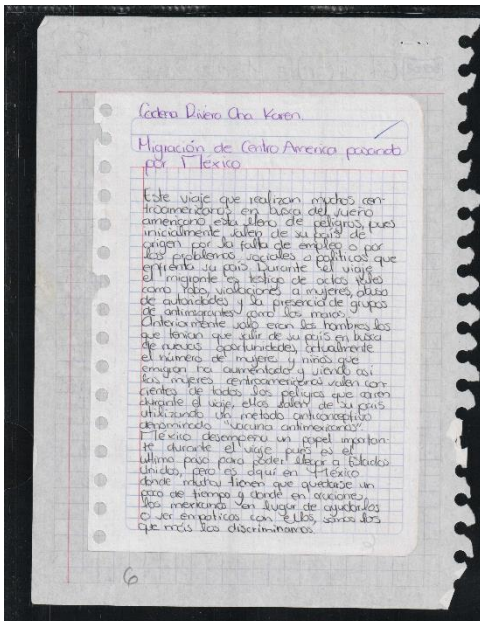 Cadena Rivera Ana Karen.
Migración de Centro America pasando
por México
Este viaje que realizan muchos cen-
troamericanos en busca del sueño
americano esta lleno de peligros, pues
inicialmente, salen de su país de
origen por la falta de empleo o por
los problemas sociales o politicos que
enfrenta su país. Durante el viaje
el migrante es testigo de actos
como robo, violaciones a mujeres, abuso
de autoridades y la presencia de grupos
de antimigrantes como los maras.
Anteriormente solo eran los hombres los
que tenían que salir de su país en busca
de nuevas oportunidades, actualmente
el número de mujeres y niños que
emigran ha aumentado y siendo así
las mujeres centroamericanas salen con-
cientes de todos los peligros que corren
durante el viaje, ellas salen de su país
utilizando un metodo anticonceptivo
denominado "vacuna antimexicanos".
México desempeña un papel importan-
te durante el viaje pues es el
ultimo paso para poder llegar a Estados
Unidos, pero es aquí en México
donde muchos tienen que quedarse un
poco de tiempo y donde en ocaciones,
los mexicanos en lugar de ayudarlos
o ser empaticos con ellos, somos los
que más los discriminamos.
6